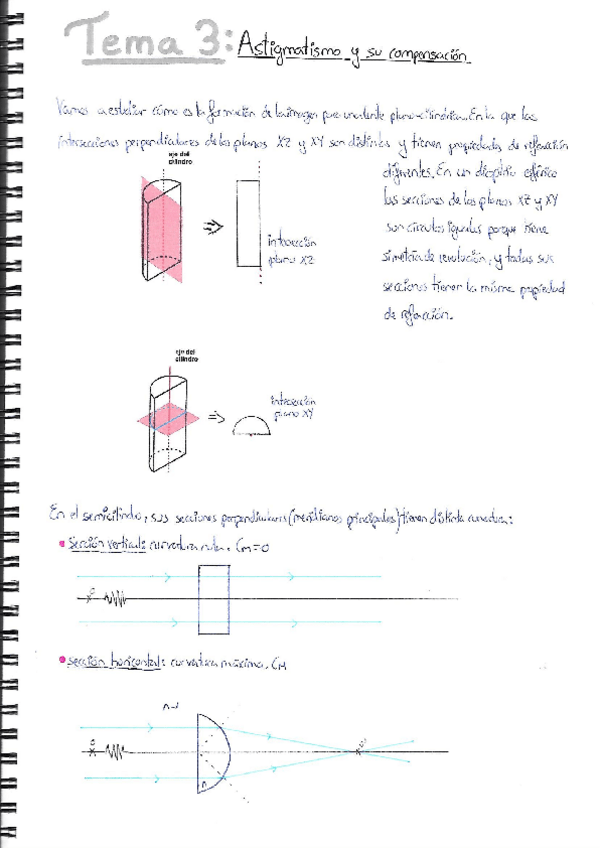 Tema 3: Astigmatismo y su compensación
Vamos a estudiar cómo es la formación de la imagen por una lente plano-cilíndrica. En la que las
intersecciones perpendiculares de los planos XZ y XY son distintas y tienen propiedades de refracción
diferentes. En un dioptrio esférico
las secciones de los planos XZ y XY
son círculos iguales porque tiene
simetría de revolución, y todas sus
secciones tienen la misma propiedad
de refracción.
eje del
cilindro
intersección
plano XZ
eje del
cilindro
intersección
plano XY
En el semicilindro, sus secciones perpendiculares (meridianos principales) tienen distinta curvatura:
• Sección vertical: curvatura nula. Cm=0
• Sección horizontal: curvatura máxima. CM
n=1
n